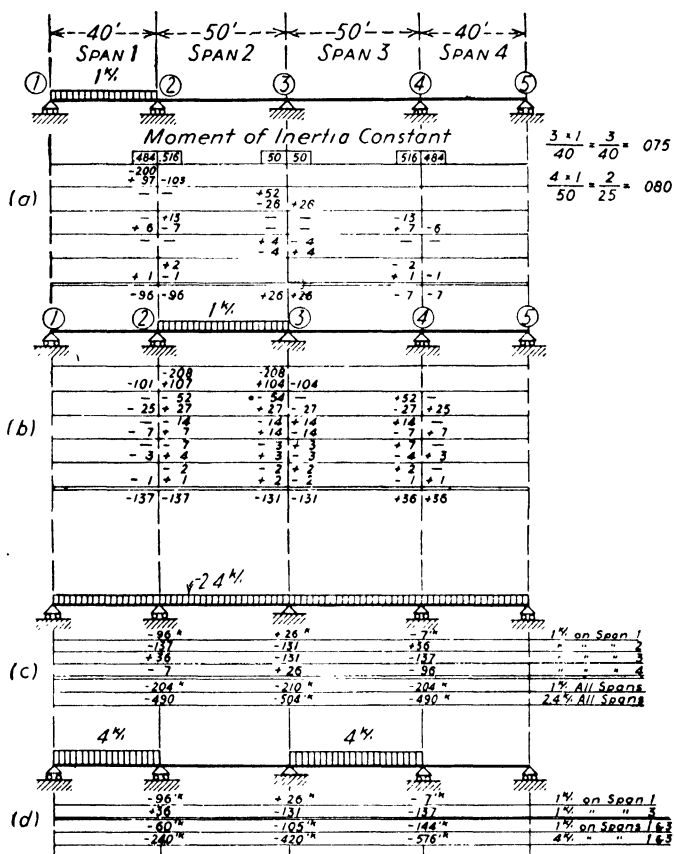 40' 50' 50' 40'
SPAN 1 SPAN 2 SPAN 3 SPAN 4
1 k/'
1 2 3 4 5
Moment of Inertia Constant
3 × 1 / 40 = 3 / 40 = 075
4 × 1 / 50 = 2 / 25 = 080
484 516 50 50 516 484
(a)
-200
+ 97 -103
— — +52
-26 +26
— +13 — — -13
+ 6 - 7 — — + 7 -6
— — + 4 - 4 — —
- 4 + 4
+2 - 2
+ 1 - 1 + 1 -1
-96 -96 +26 +26 - 7 - 7
1 k/'
1 2 3 4 5
(b)
-208 -208
-101 +107 +104 -104
— - 52 - 54 — +52 —
- 25 + 27 + 27 - 27 -27 +25
— - 14 - 14 + 14 +14 —
- 7 + 7 + 14 - 14 - 7 + 7
— - 7 - 3 + 3 + 7 —
- 3 + 4 + 3 - 3 - 4 + 3
- 2 - 2 + 2 + 2 —
- 1 + 1 + 2 - 2 - 1 + 1
-137 -137 -131 -131 +36 +36
2.4 k/'
(c)
-96 'k +26 'k -7 'k 1 k/' on Span 1
-137 -131 +36 " " " 2
+36 -131 -137 " " " 3
- 7 +26 - 96 " " " 4
-204 'k -210 'k -204 'k 1 k/' All Spans
-490 -504 'k -490 'k 2.4 k/' All Spans
4 k/' 4 k/'
(d)
-96 'k +26 'k - 7 'k 1 k/' on Span 1
+36 -131 -137 1 k/' " " 3
-60 'k -105 'k -144 'k 1 k/' on Spans 1 & 3
-240 'k -420 'k -576 'k 4 k/' " " 1 & 3